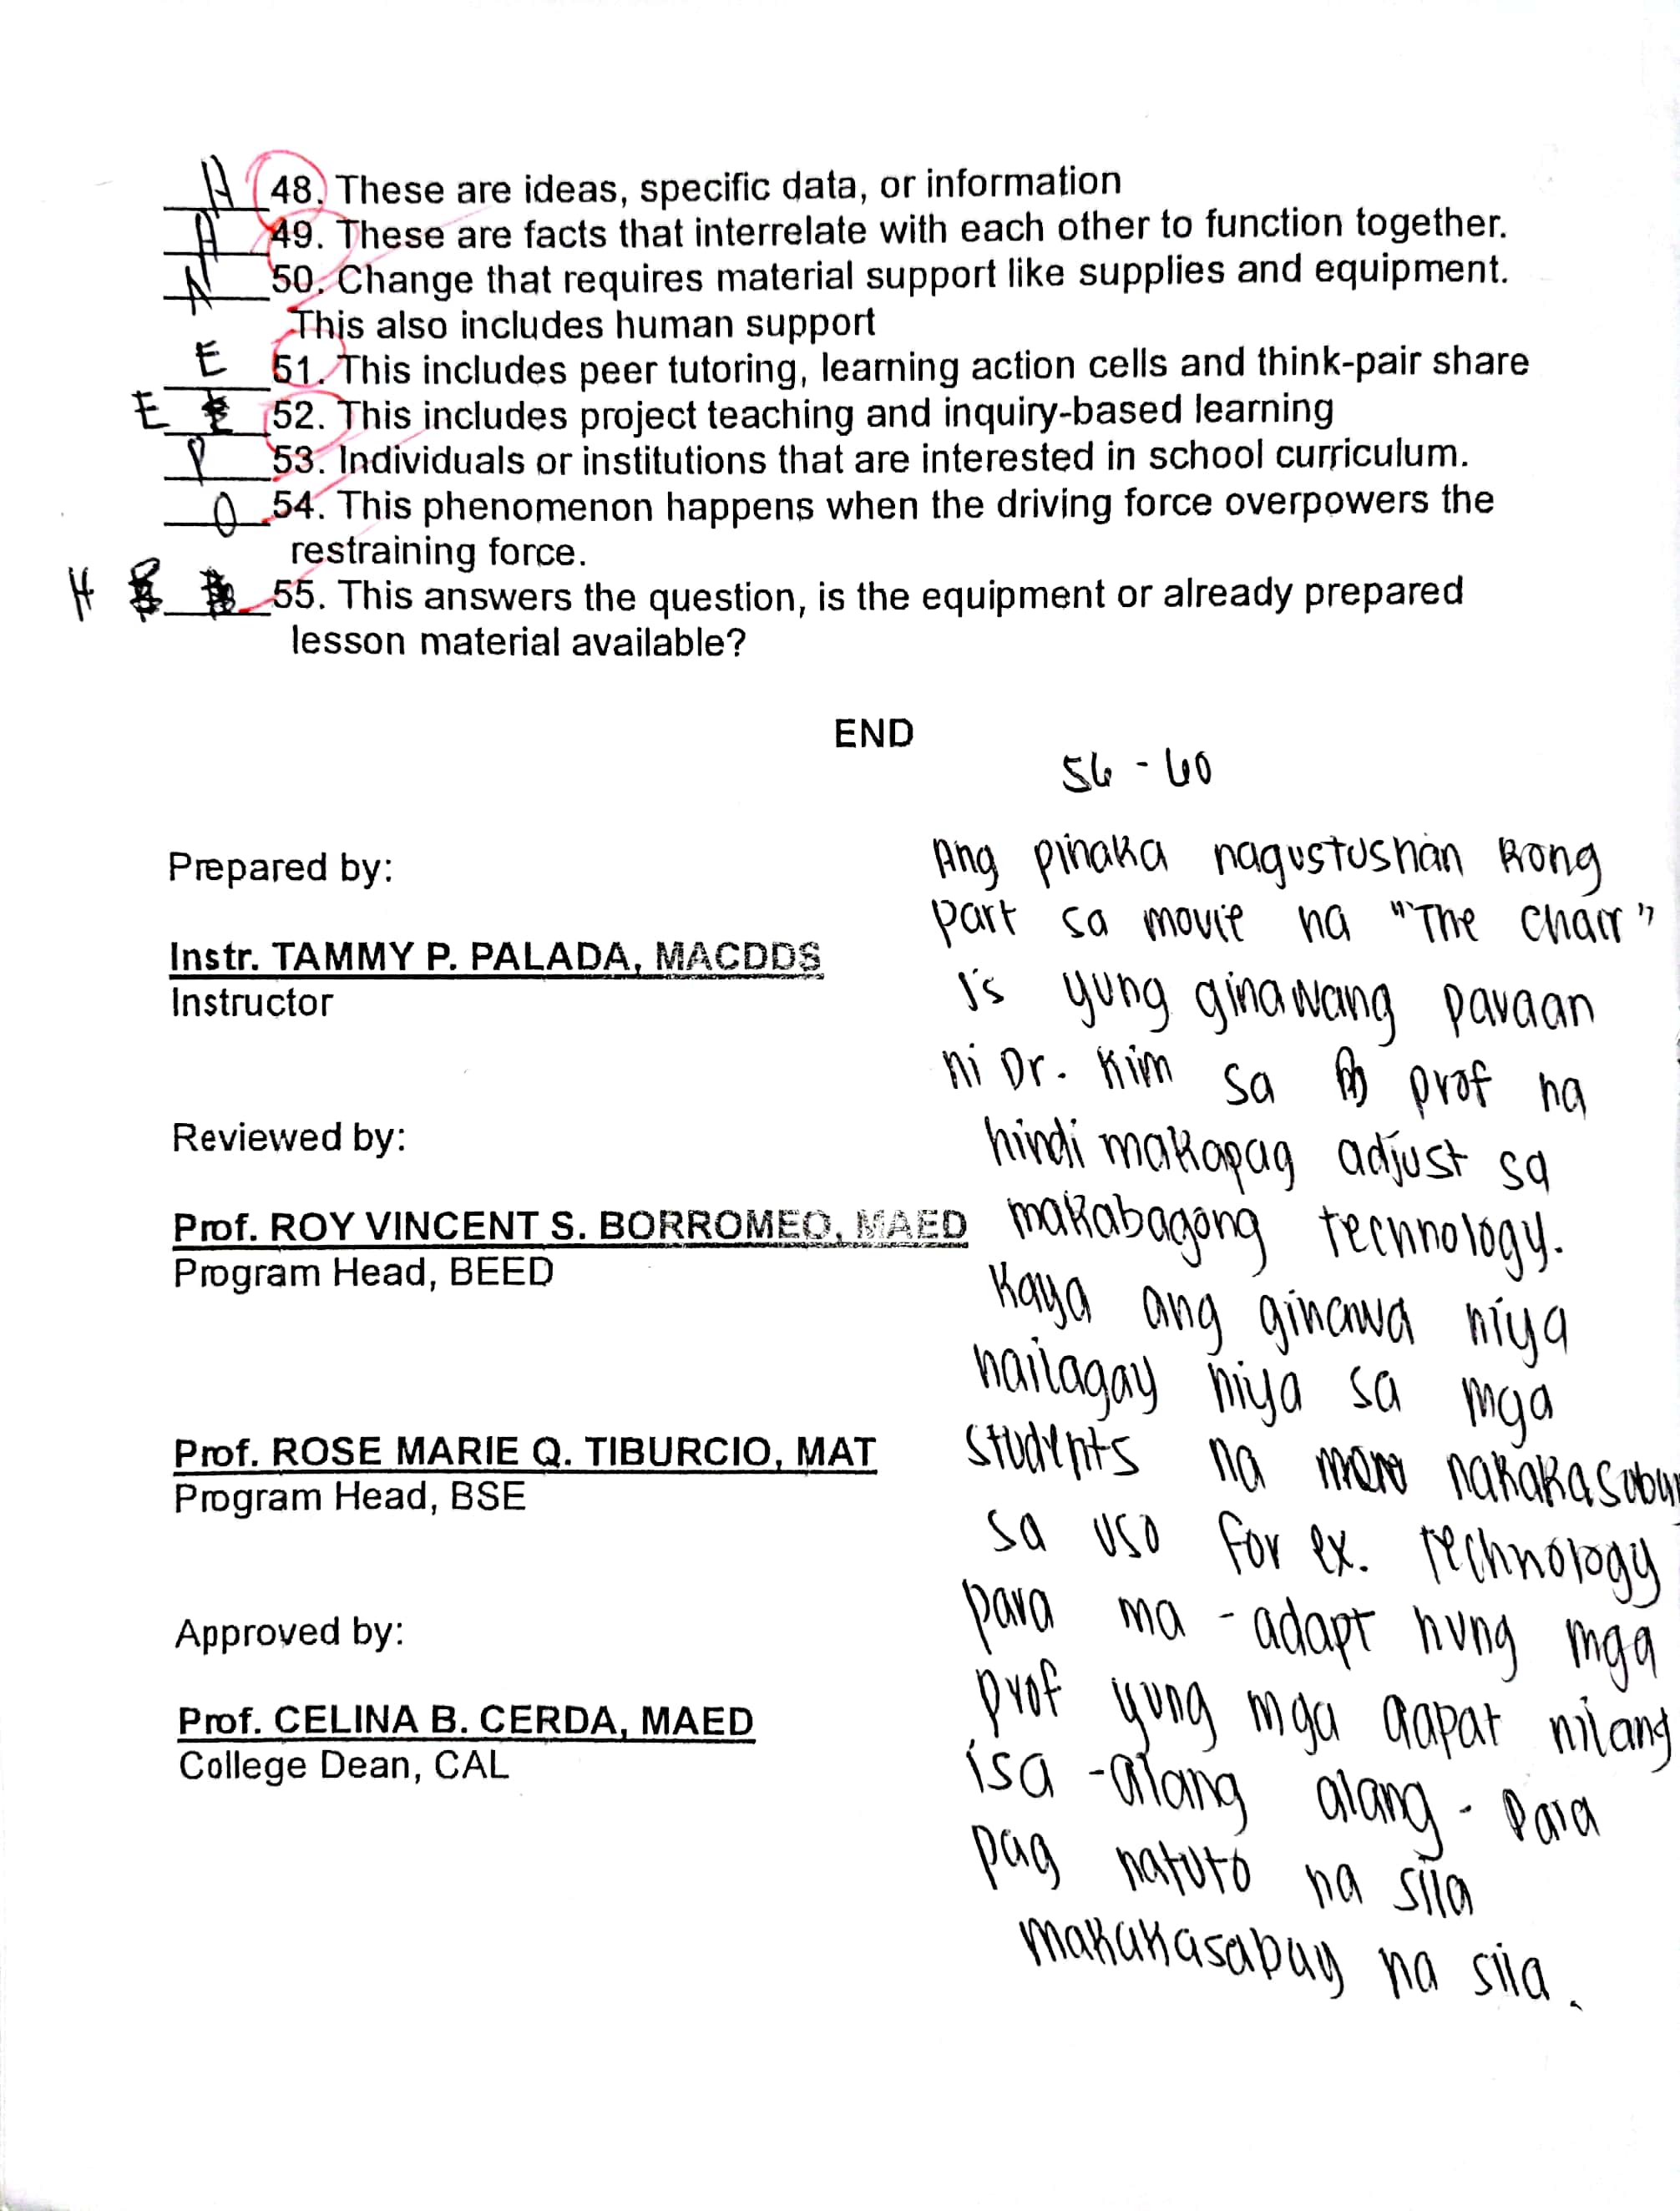 H 48. These are ideas, specific data, or information
A 49. These are facts that interrelate with each other to function together.
N 50. Change that requires material support like supplies and equipment.
This also includes human support
E 51. This includes peer tutoring, learning action cells and think-pair share
E 52. This includes project teaching and inquiry-based learning
P 53. Individuals or institutions that are interested in school curriculum.
O 54. This phenomenon happens when the driving force overpowers the
restraining force.
H 55. This answers the question, is the equipment or already prepared
lesson material available?
END
56 - 60
Prepared by:
Instr. TAMMY P. PALADA, MACDDS
Instructor
Reviewed by:
Prof. ROY VINCENT S. BORROMEO, MAED
Program Head, BEED
Prof. ROSE MARIE Q. TIBURCIO, MAT
Program Head, BSE
Approved by:
Prof. CELINA B. CERDA, MAED
College Dean, CAL
Ang pinaka nagustushan kong
part sa movie na "The Chair"
is yung ginawang paraan
ni Dr. Kim sa prof na
hindi makapag adjust sa
makabagong technology.
Kaya ang ginawa niya
nailagay niya sa mga
students na nakakasabay
sa uso for ex. technology
para ma - adapt nung mga
prof yung mga dapat nilang
isa - alang alang - Para
pag natuto na sila
makakasabay na sila.